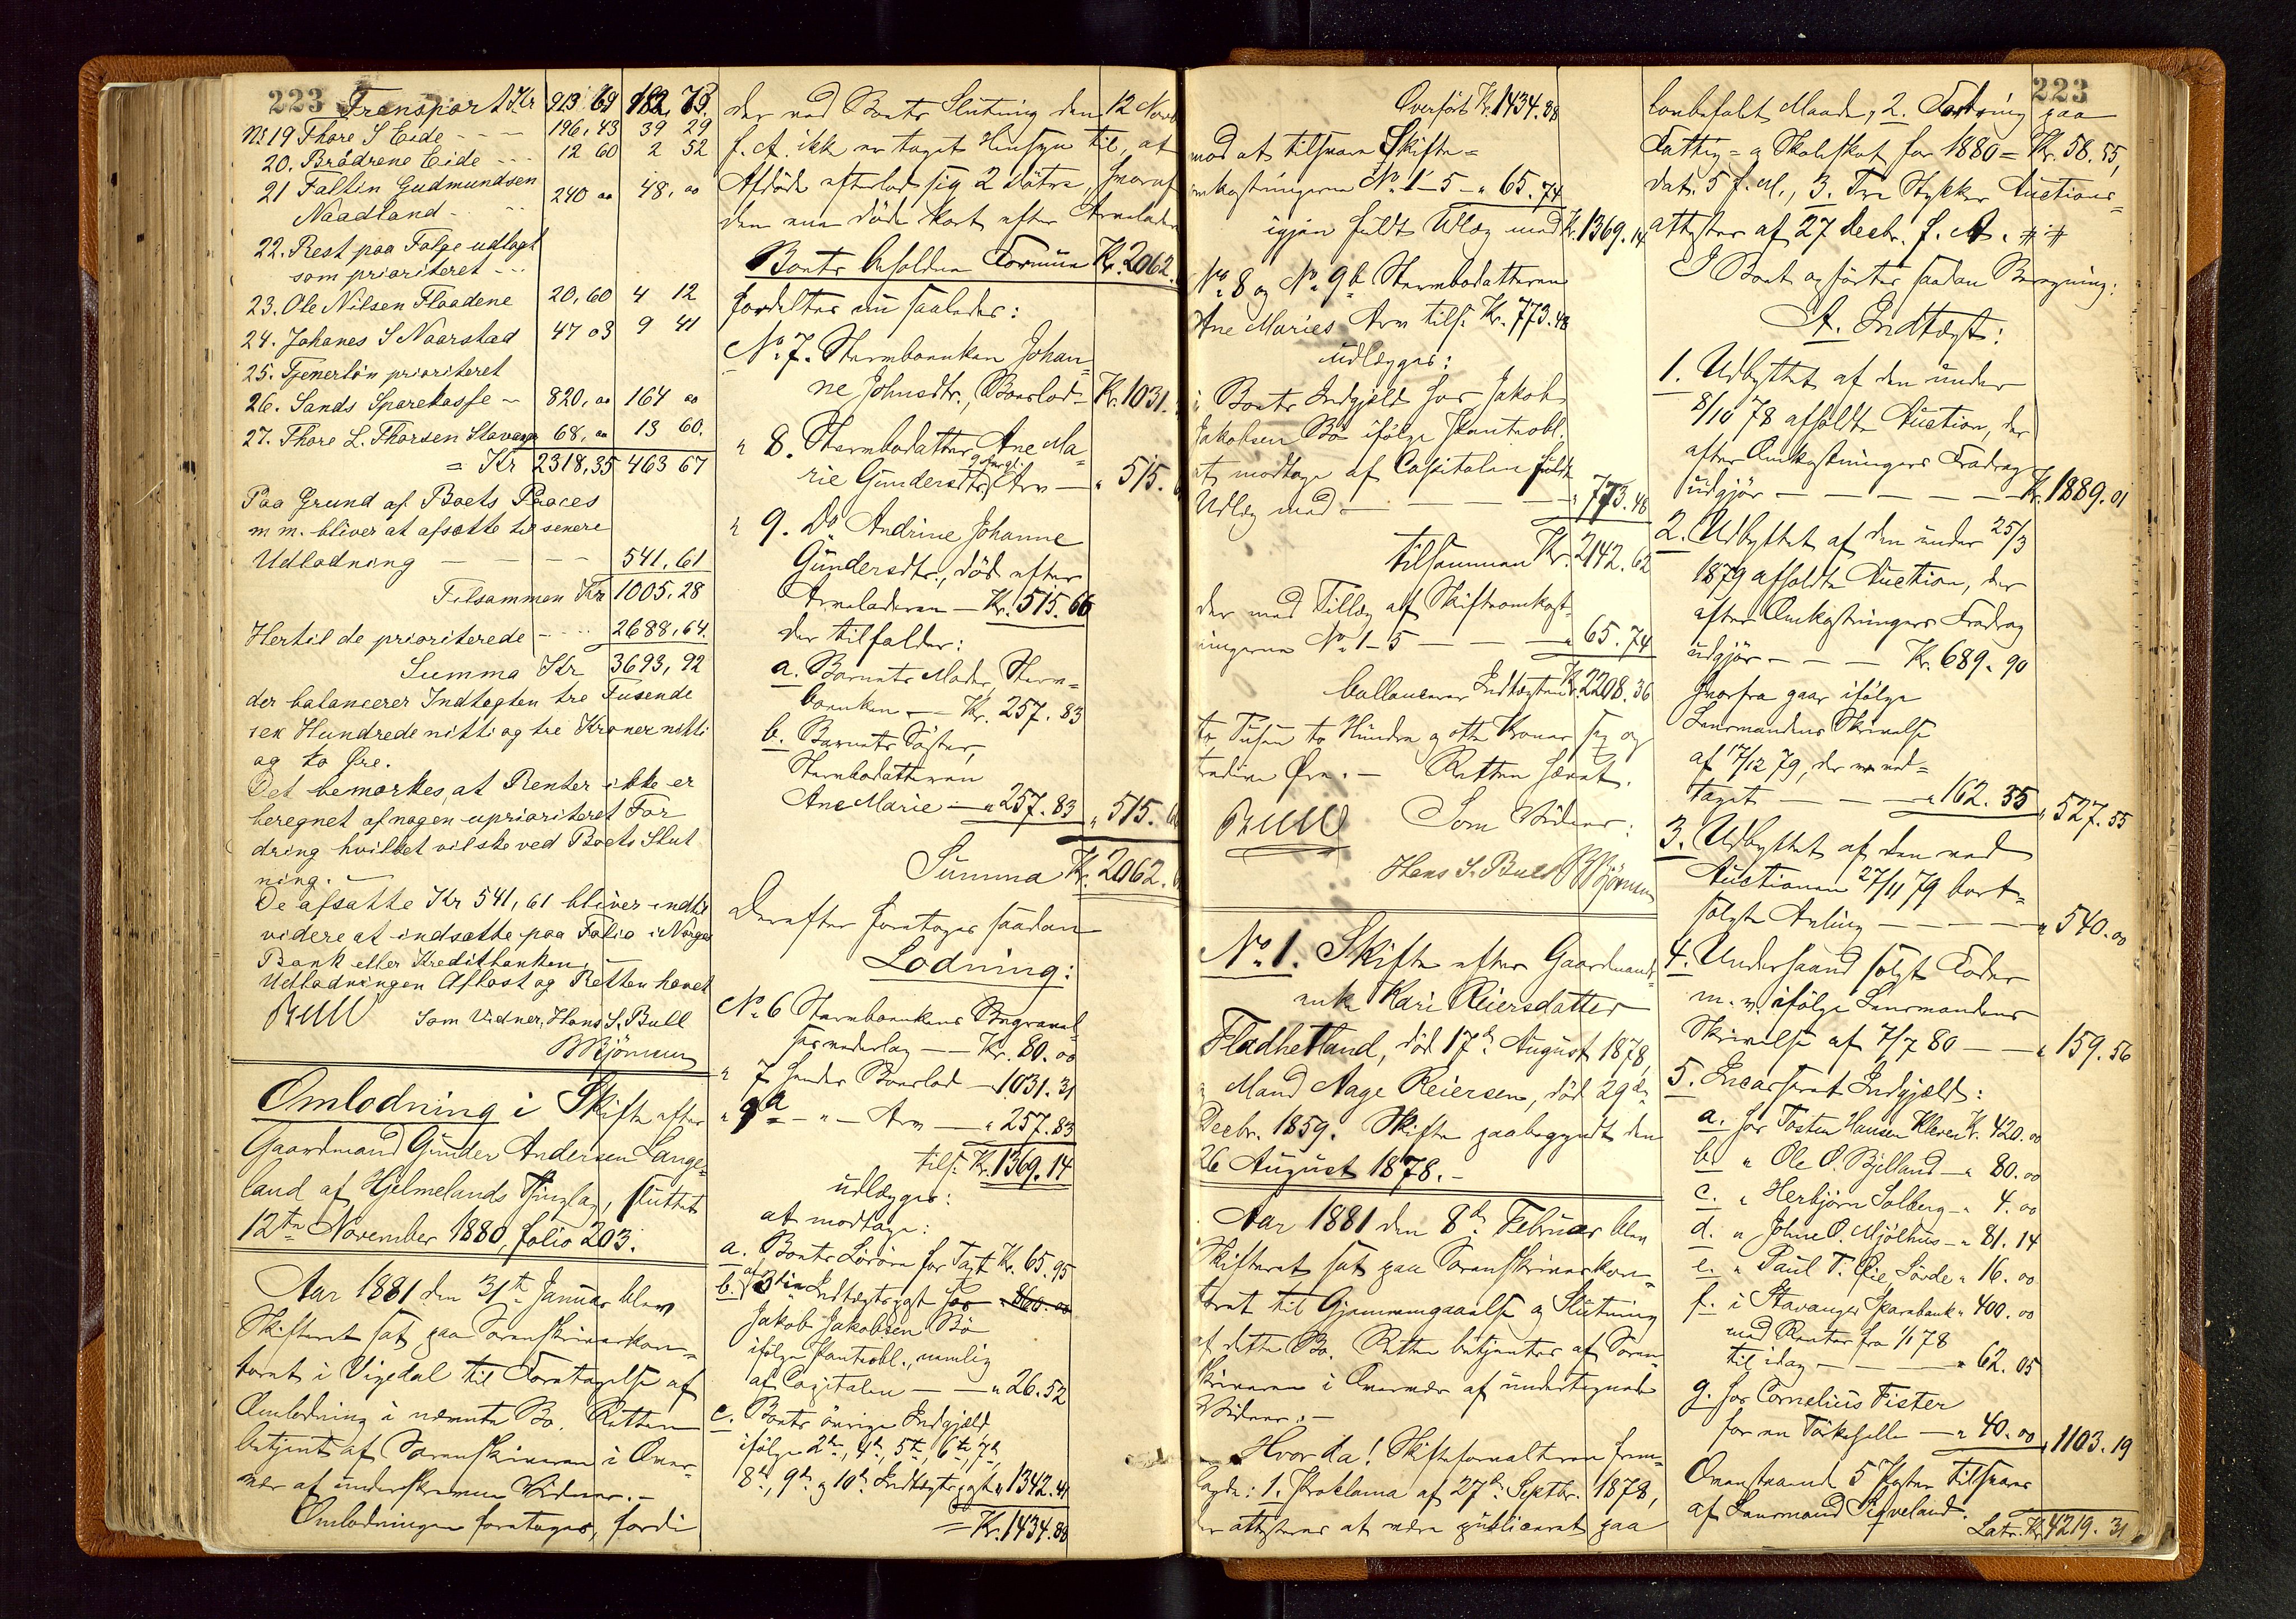 223 Transport Kr 913 69 182,73.
No 19 Thore S Eide - - - 196,43 39 29
20. Brödrene Eide - - - 12 60 2 52
21 Faltin Gudmundsen
Naadland - - - 240 00 48,00
22. Rest paa Følge udlagt
som prioriteret - - -
23. Ole Nilsen Flaadene 20,60 4 12
24. Johanes S Naarstad 47 03 9 41
25. Tjenerløn prioriteret
26. Sands Sparekasse - 820,00 164 00
27. Thore L. Thorsen Stavanger 68,00 13 60.
= Kr 2318,35 463 67
Paa Grund af Boets Proces
m m. bliver at afsætte til senere
Udlodning - - - 541,61
Tilsammen Kr 1005,28
Hertil de prioriterede - - - 2688,64.
Summa Kr 3693,92
der balancerer Indtægten tre Tusende
sex Hundrede nitti og tre Kroner nitti
og to Øre.
Det bemærkes, at Renter ikke er
beregnet af nogen uprioriteret For
dring hvilket vil ske ved Boets Slut
ning. -
De afsatte Kr 541,61 bliver indtil
videre at indsætte paa Folio i Norges
Bank eller Kreditbanken. -
Udlodningen Aflæst og Retten hævet
Bull Som Vidner, Hans S. Bull
B Björnsen
Omlodning i Skifte efter
Gaardmand Gunder Andersen Lange-
land af Hjelmelands Thinglag, sluttet
12te November 1880, folio 203.
Aar 1881 den 31te Januar blev
Skifteret sat paa Sorenskriverkon-
toret i Vigedal til Foretagelse af
Omlodning i nævnte Bo. Retten
betjent af Sorenskriveren i Over-
vær af underskrevne Vidner. -
Omlodningen foretages, fordi
der ved Boets Slutning den 12 Novb
f. A. ikke er taget Hensyn til, at
Afdöde efterlod sig 2 Dötre, hvoraf
den ene döde kort efter Arveladeren
Boets beholdne Formue Kr. 2062.
fordeltes nu saaledes:
No 7. Stervboenken Johan-
ne Johnsdtr., Boeslod - Kr. 1031.
" 8. Stervbodatter Ane Ma-
rie Gundersdtrs Arv - " 515.
" 9. Do Andrine Johanne
Gundersdtr., död efter
Arveladeren - Kr. 515.66
der tilfalder:
a. Barnets Moder, Sterv-
boenken - - Kr. 257.83
b. Barnets Söster,
Stervbodatteren
Ane Marie - " 257.83 " 515.
Summa Kr. 2062.
Derefter foretoges saadan
Lodning:
No 6 Stervboenkens Begravel-
sesvederlag - - Kr. 80.00
" 7 hendes Boeslod - 1031.31
" 9a - " - Arv - " 257.83
tils. Kr. 1369.14
udlægges:
at modtage:
a. Boets Lösöre for Taxt Kr. 65.95
b. af 3die Indtægtspost hos 860.00
Jakob Jakobsen Bö
ifölge Panteobl., nemlig
af Capitalen - - " 26.52
c. Boets övrige Indgjæld
ifölge 2de, 4de, 5te, 6te, 7de,
8de, 9de og 10de Indtægtspost " 1342.41
= Kr. 1434.88
Overfört Kr. 1434.88
mod at tilsvare Skifte-
omkostningerne No 1-5 - " 65.74
igjen fuldt Udlæg med Kr. 1369.14
No 8 og No 9b Stervbodatteren
Ane Maries Arv tils. Kr. 773.48
udlægges:
i Boets Indgjæld hos Jakob
Jakobsen Bö ifölge Panteobl.
at modtage af Capitalen fuldt
Udlæg med - - - - " 773.48
tilsammen Kr. 2142.62
der med Tillæg af Skifteomkost-
ningerne No 1-5 - - - " 65.74
ballancerer Indtægten Kr. 2208.36
to Tusen to Hundre og otte Kroner sex og
tredive Öre. - Retten hævet.
Bull Som Vidner:
Hans S. Bull B Björnsen
No 1. Skifte efter Gaardmands-
enke Kari Reiersdatter
Fladhetland, död 17de August 1878,
og Mand Aage Reiersen, död 29de
Decbr. 1859. Skifte paabegyndt den
26 August 1878. -
Aar 1881 den 8de Februar blev
Skifteret sat paa Sorenskriverkon-
toret til Gjennemgaaelse og Slutning
af dette Bo. Retten betjentes af Soren-
skriveren i Overvær af undertegnede
Vidner. -
Hvor da! Skifteforvalteren frem-
lagde: 1. Proklama af 27de Septbr. 1878,
der attesteres at være publiceret paa
223
lovbefalt Maade, 2. Fordring paa
Fattig- og Skoleskat for 1880 = Kr. 58.55,
dat. 5 f. M., 3. Tre Stykker Auctions-
attester af 27 Decbr. f. A.
I Boet opförtes saadan Beregning:
A. Indtægt:
1. Udbyttet af den under
8/10 78 afholdte Auction, der
efter Omkostningers Fradrag
udgjör - - - - - Kr. 1889.01
2. Udbyttet af den under 25/3
1879 afholdte Auction, der
efter Omkostningers Fradrag
udgjör - - - Kr. 689.90
hvorfra gaar ifölge
Lensmandens Skrivelse
af 17/12 79, der er ved-
taget - - - " 162.35 " 527.55
3. Udbyttet af den ved
Auctionen 27/11 79 bort-
solgte Avling - - - - " 540.00
4. Underhaand solgt Foder
m. v. ifölge Lensmandens
Skrivelse af 7/7 80 - - " 159.56
5. Incasseret Indgjæld:
a. hos Tosten Hansen Kleven Kr. 420.00
b. " Ole O. Bjelland - " 80.00
c. " Herbjörn Solberg - " 4.00
d. " Johne O. Mjölhus - " 81.14
e. " Paul T. Eie, Lövde " 16.00
f. i Stavanger Sparebank " 400.00
med Renter fra 1/1 78
til idag - - - - " 62.05
g. hos Cornelius Tister
for en - " 40.00 " 1103.19
Ovenstaaende 5 Poster tilsvares
af Lensmand Sigveland.
Lat. Kr. 4219.31